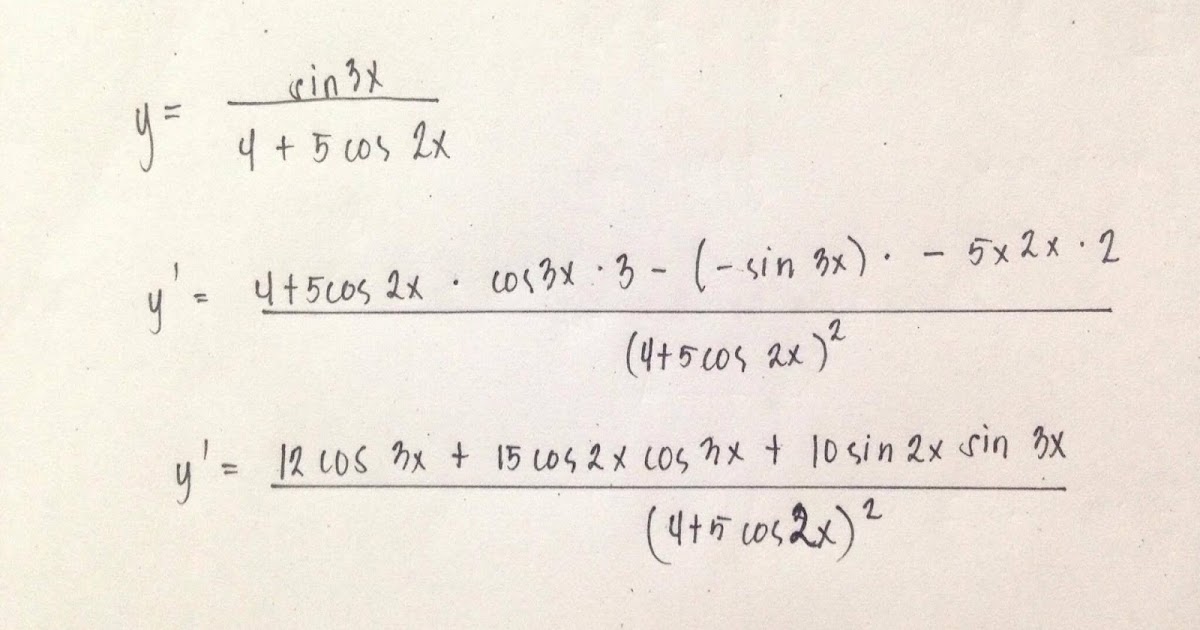 y = sin 3x / 4 + 5 cos 2x
y' = 4+5cos 2x · cos3x · 3 - (-sin 3x) · - 5x2x · 2 / (4+5cos 2x)²
y' = 12 cos 3x + 15 cos 2x cos 3x + 10 sin 2x sin 3x / (4+5 cos 2x)²